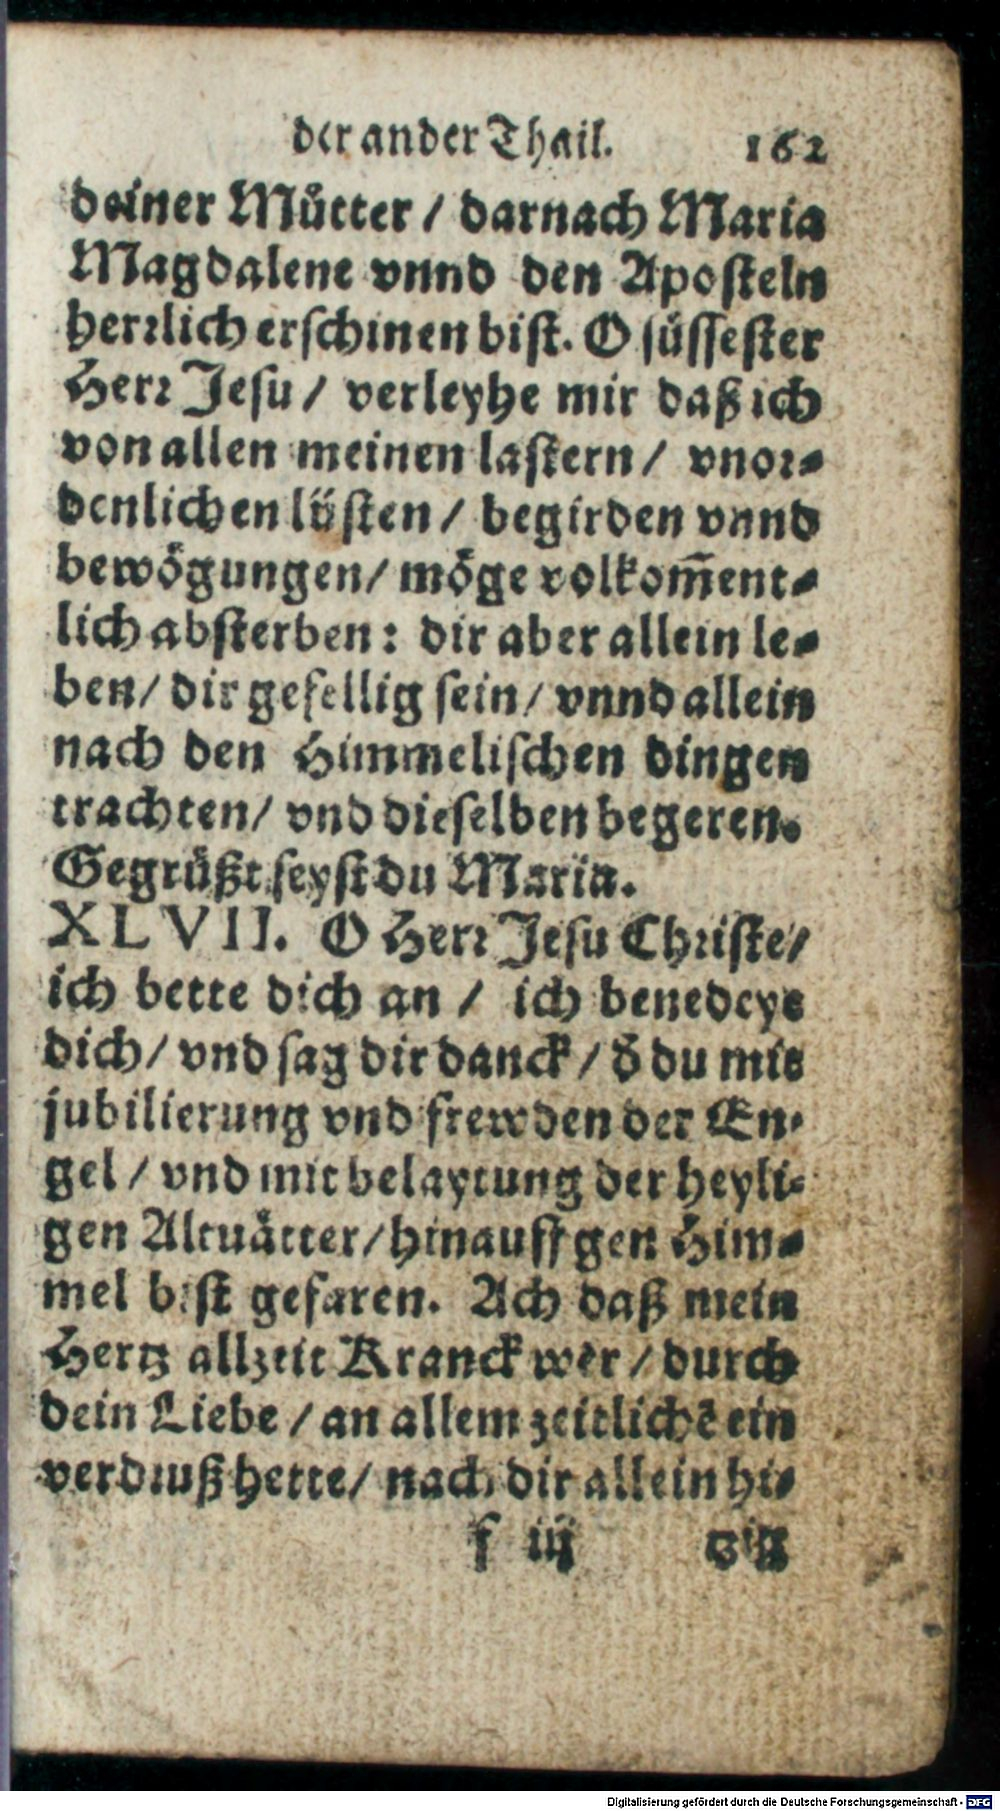 der ander Thail. 162
deiner Můtter / darnach Maria
Magdalene vnnd den Aposteln
herꝛlich erschinen bist. O süssester
Herꝛ Jesu / verleyhe mir daß ich
von allen meinen lastern / vnoꝛ-
denlichen lüsten / begirden vnnd
bewögungen / möge volkom̃ent-
lich absterben : dir aber allein le-
ben / dir gefellig sein / vnnd allein
nach den Himmelischen dingen
trachten / vnd dieselben begeren.
Gegrüßt seyst du Maria.
XLVII. O Herꝛ Jesu Chꝛiste /
ich bette dich an / ich benedeye
dich / vnd sag dir danck / ð du mit
jubilierung vnd frewden der En-
gel / vnd mit belaytung der heyli-
gen Altuätter / hinauff gen Him-
mel bist gefaren. Ach daß mein
Hertz allzeit Kranck wer / durch
dein Liebe / an allem zeitlichē ein
verdꝛuß hette / nach dir allein hi-
f iij tzig